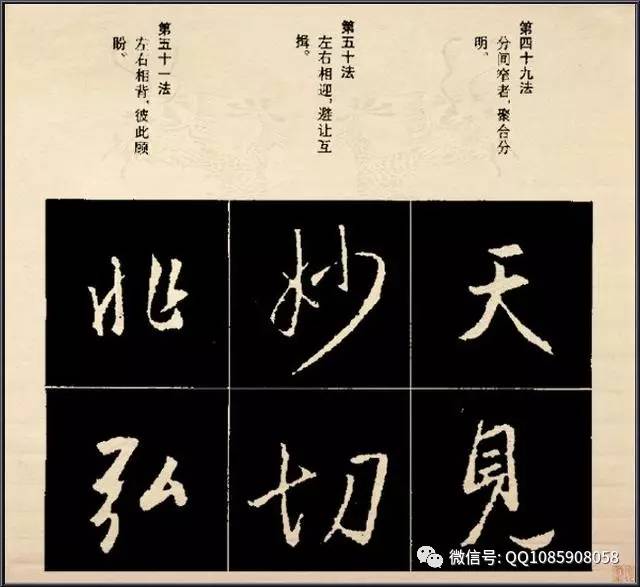 第四十九法
分间窄者，聚合分
明。
第五十法
左右相迎，避让互
揖。
第五十一法
左右相背，彼此顾
盼。
天
見
妙
切
非
弘
微信号: QQ1085908058